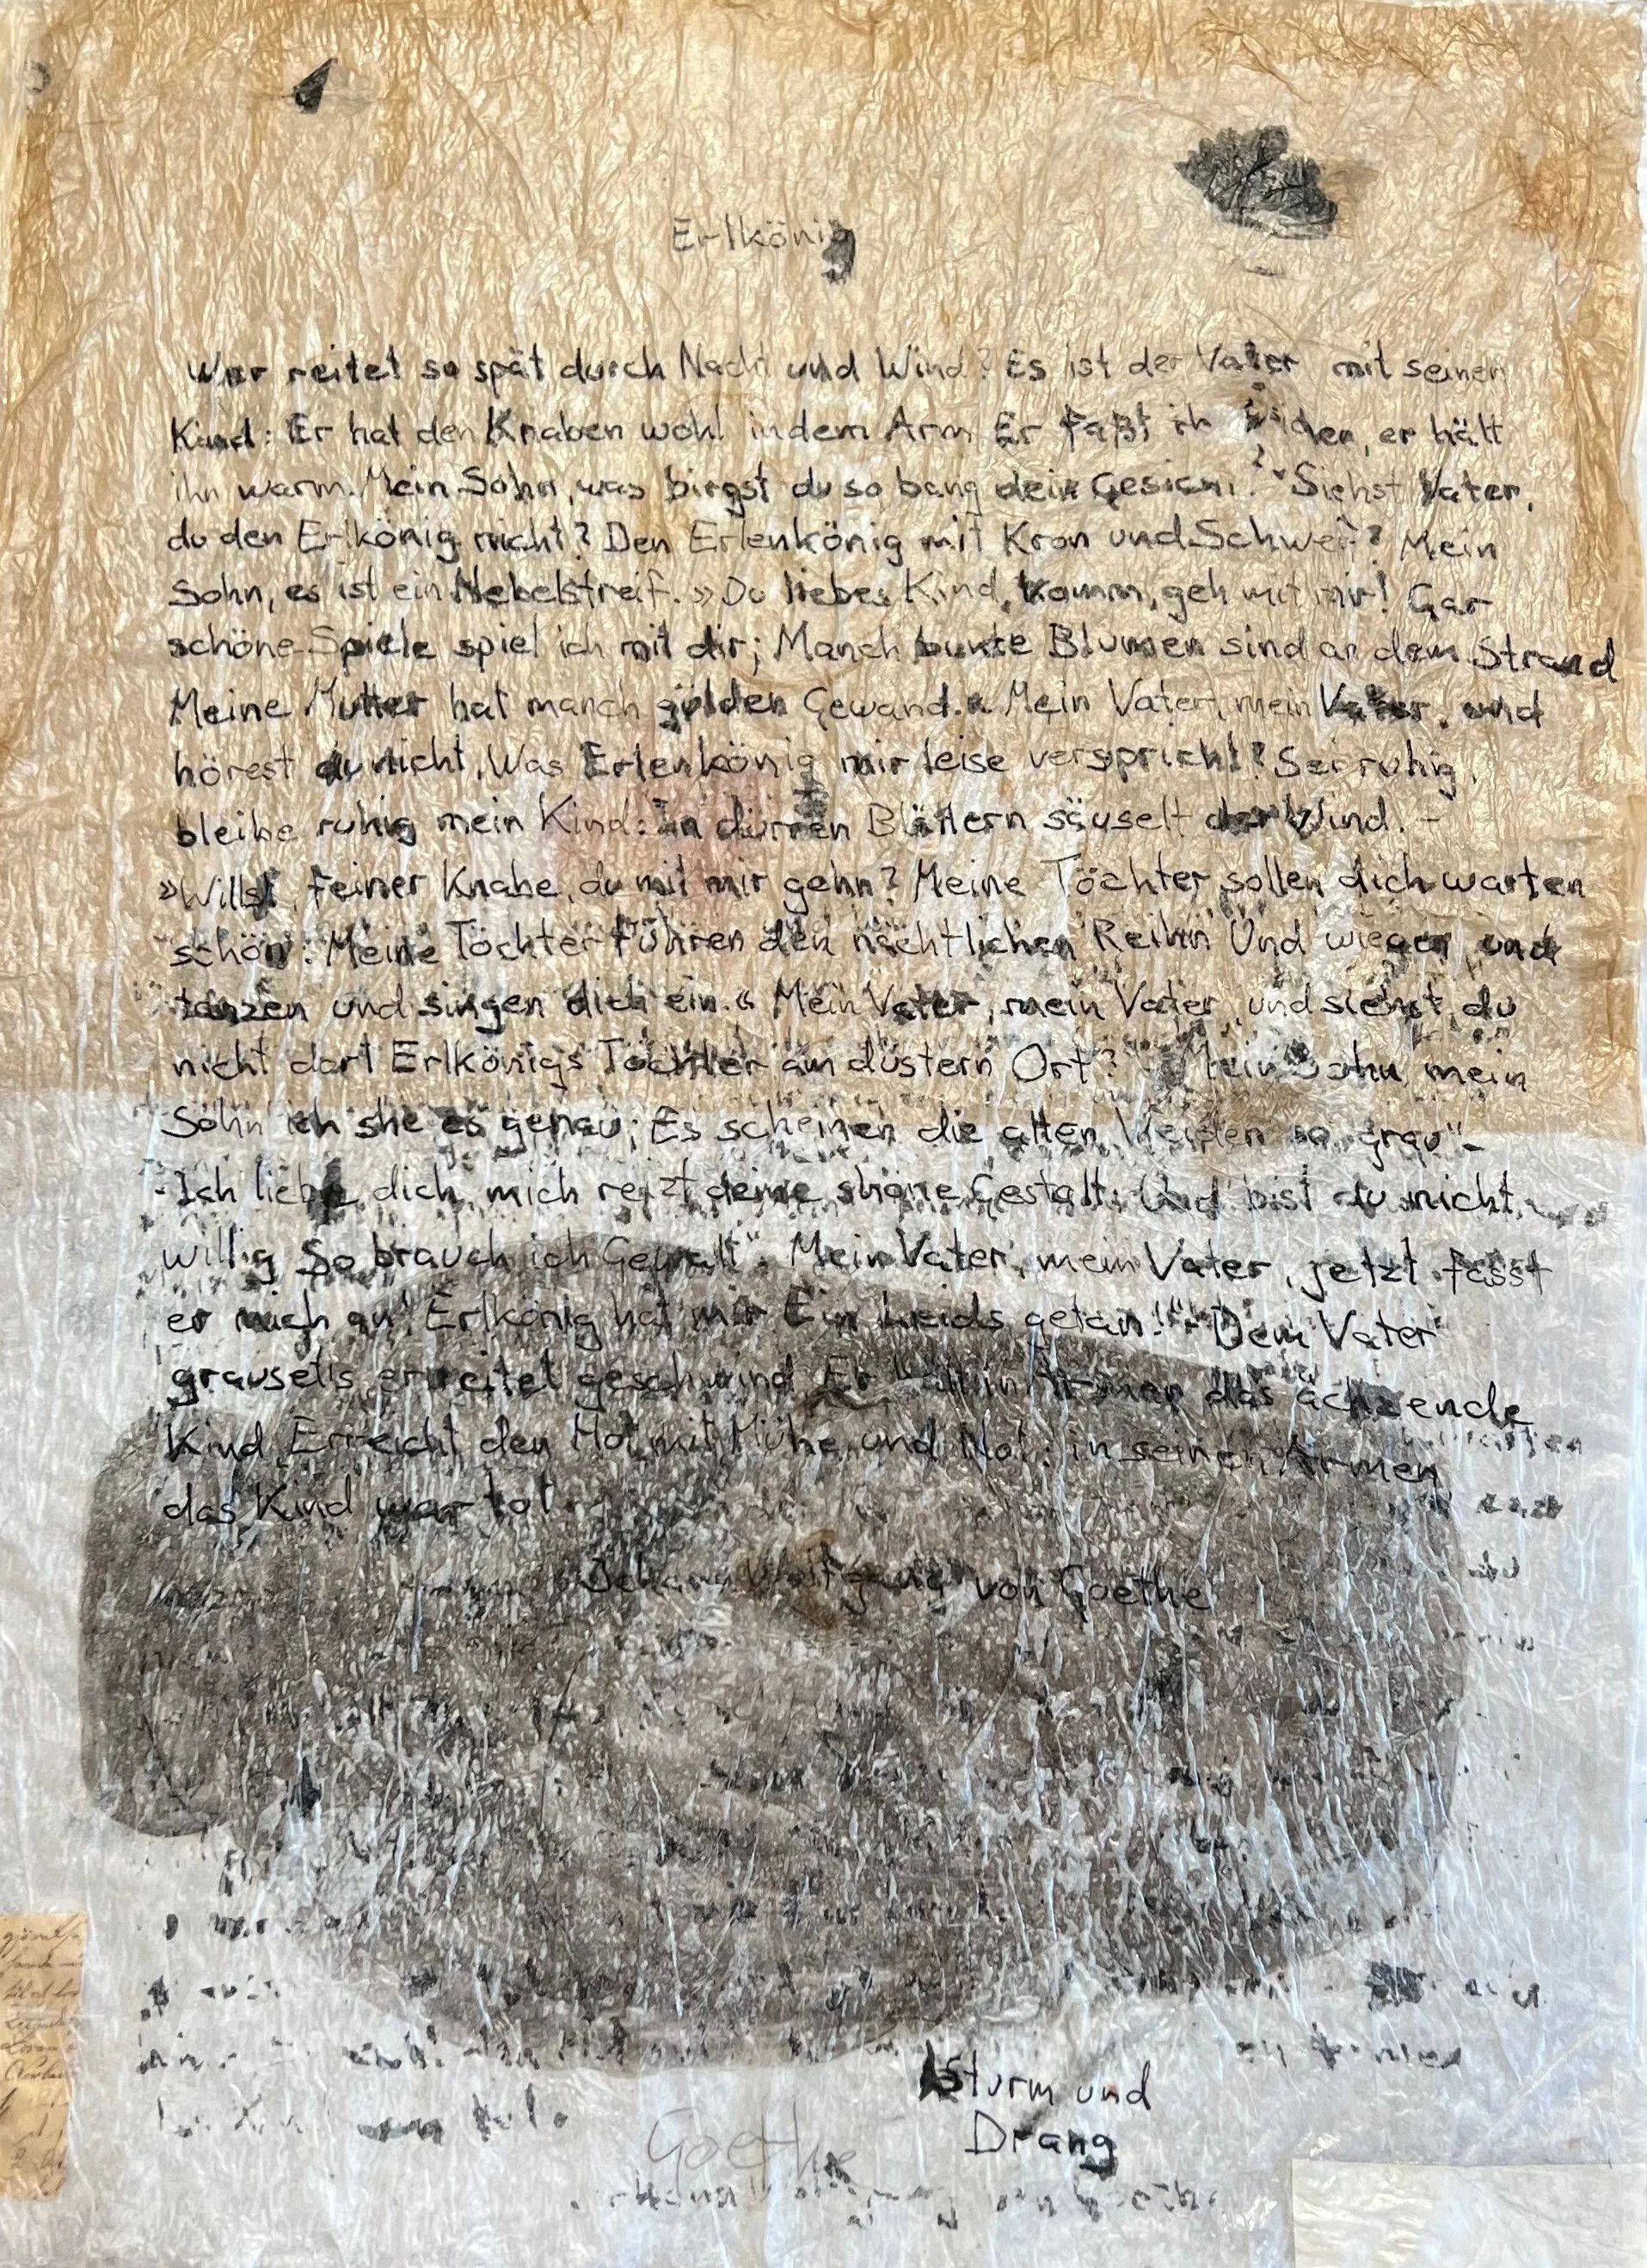 Erlkönig
Wer reitet so spät durch Nacht und Wind? Es ist der Vater mit seinen
Kind: Er hat den Knaben wohl in dem Arm Er faßt ih er hält
ihn warm. Mein Sohn, was birgst du so bang dein Gesicht? Siehst Vater,
du den Erlkönig nicht? Den Erlenkönig mit Kron und Schweif? Mein
Sohn, es ist ein Nebelstreif. » Du liebes Kind, komm, geh mit mir! Gar
schöne Spiele spiel ich mit dir; Manch bunte Blumen sind an dem Strand
Meine Mutter hat manch gülden Gewand. « Mein Vater, mein Vater, und
hörest du nicht, Was Erlenkönig mir leise verspricht? Sei ruhig,
bleibe ruhig mein Kind: in dürren Blättern säuselt der Wind. -
»Willst, feiner Knabe, du mit mir gehn? Meine Töchter sollen dich warten
schön: Meine Töchter führen den nächtlichen Reihn Und wiegen und
tanzen und singen dich ein.« Mein Vater, mein Vater, und siehst du
nicht dort Erlkönigs Töchter am düstern Ort? - Mein Sohn, mein
Sohn ich she es genau; Es scheinen die alten Weiden so grau"-
-Ich liebe dich, mich reizt deine shöne Gestalt, Und bist du nicht
willig So brauch ich Gewalt". Mein Vater, mein Vater, jetzt fasst
er mich an! Erlkönig hat mir Ein Leids getan!"- Dem Vater
grausets er reitet geschwind Er in Armen das ächzende
Kind Erreicht den Hof mit Mühe und Not: in seinen Armen
das Kind war tot
Johann Wolfgang von Goethe
Sturm und
Drang
Goethe